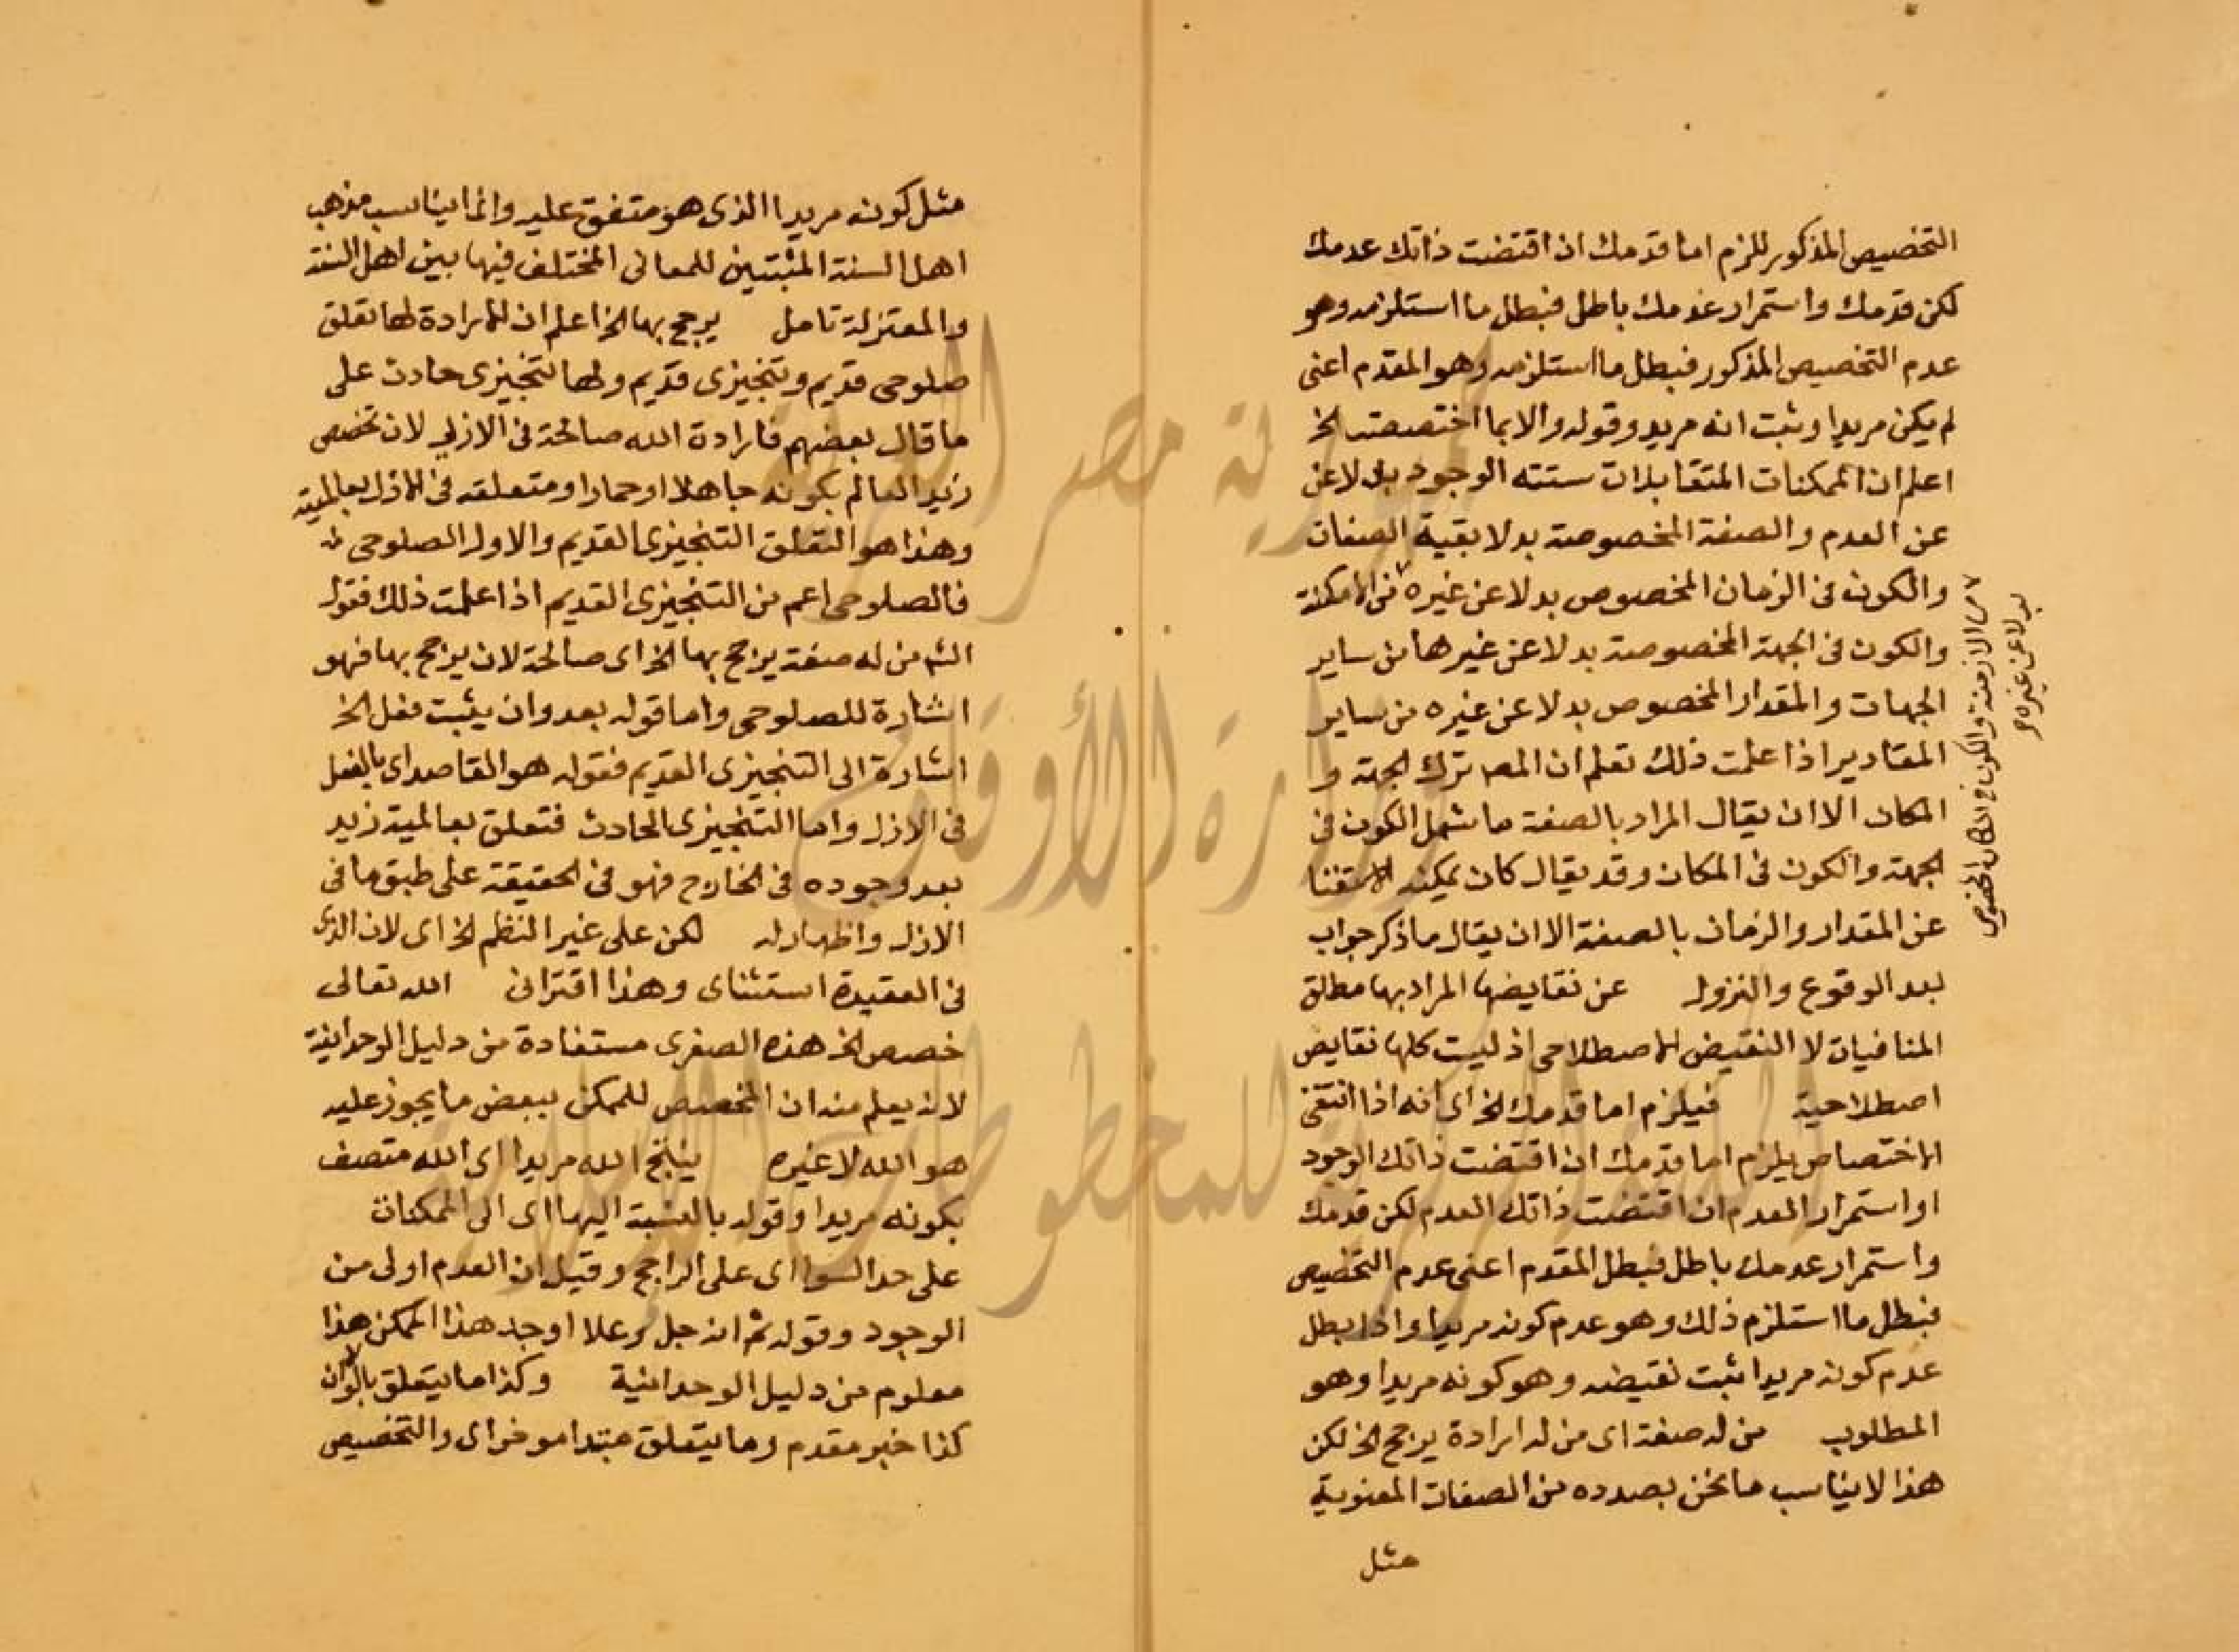 التخصيص المذكور للزم اما قدمك ان اقتضت ذاتك عدمك
لكن قدمك واستمرار عدمك باطل فبطل ما استلزمه وهو
عدم التخصيص المذكور فبطل ما استلزمه وهو المقدم اعنى
لم يكن مريدا وثبت انه مريد وقوله والا بما اختصصت الخ
اعلم ان الممكنات المتقابلات ستته الوجود بدلا عن
عن العدم والصفة المخصوصة بدلا بقية الصفات
والكون فى الزمان المخصوص بدلا عن غيره من الامكنة
من الازمنة والكون فى المكان المخصوص
بدلا عن غيره
والكون فى الجهة المخصوصة بدلا عن غيرها من ساير
الجهات والمقدار المخصوص بدلا عن غيره من ساير
المقادير اذا علمت ذلك تعلم ان المص ترك الجهة و
المكان الا ان يقال المراد بالصفة ما شمل الكون فى
الجهة والكون فى المكان وقد يقال كان يمكنه الاستغنا
عن المقدار والزمان بالصفة الا ان يقال ما ذكر جواب
بعد الوقوع والنزول عن نقايضها المراد بها مطلق
المنافيات لا النقيض الاصطلاحى اذ ليست كلها نقايض
اصطلاحية فيلزم اما قدمك الخ اى انه اذا انتفى
الاختصاص يلزم اما قدمك ان اقتضت ذاتك الوجود
او استمرار العدم ان اقتضت ذاتك العدم لكن قدمك
واستمرار عدمك باطل فبطل المقدم اعنى عدم التخصيص
فبطل ما استلزم ذلك وهو عدم كونه مريدا واذا بطل
عدم كونه مريدا ثبت نقيضه وهو كونه مريدا وهو
المطلوب من له صفة اى من له ارادة يرجح الخ لكن
هذا لا يناسب ما نحن بصدده من الصفات المعنوية
مثل
مثل كونه مريدا الذى هو متفق عليه وانما يناسب مذهب
اهل السنة المثبتين للمعانى المختلف فيها بين اهل السنة
والمعتزلة تامل يرجح بها الخ اعلم ان للارادة لها تعلق
صلوحى قديم وتنجيزى قديم ولها تنجيزى حادث على
ما قال بعضهم فارادة الله صالحة فى الازل لان تخصص
زيد العالم بكونه جاهلا او حمارا ومتعلقه فى الازل بعالميته
وهذا هو التعلق التنجيزى القديم والاول الصلوحى
فالصلوحى اعم من التنجيزى القديم اذا علمت ذلك فقول
الش من له صفة يرجح بها الخ اى صالحة لان يرجح بها فهو
اشارة للصلوحى واما قوله بعد وان يثبت فعل الخ
اشارة الى التنجيزى القديم فقوله هو القاصد اى بالفعل
فى الازل واما التنجيزى الحادث فتعلق بعالمية زيد
بعد وجوده فى الخارج فهو فى الحقيقة على طبق ما فى
الازل واظهار له لكن على غير النظم الخ اى لان الذى
فى العقيدة استثناى وهذا اقترانى الله تعالى
خصص الخ هذه الصغرى مستفادة من دليل الوحدانية
لانه يعلم منه ان المخصص للممكن ببعض ما يجوز عليه
هو الله لا غيره ينتج الله مريدا اى الله متصف
بكونه مريدا وقوله بالنسبة اليها اى الى الممكنات
على حد السوا اى على الراجح وقيل ان العدم اولى من
الوجود وقوله ثم انه جل وعلا اوجد هذا الممكن هذا
معلوم من دليل الوحدانية وكذا ما يتعلق بالزمان
كذا خبر مقدم وما يتعلق مبتدا موخر اى والتخصيص
جمهورية مصر العربية
وزارة الأوقاف
المكتبة المركزية للمخطوطات الإسلامية